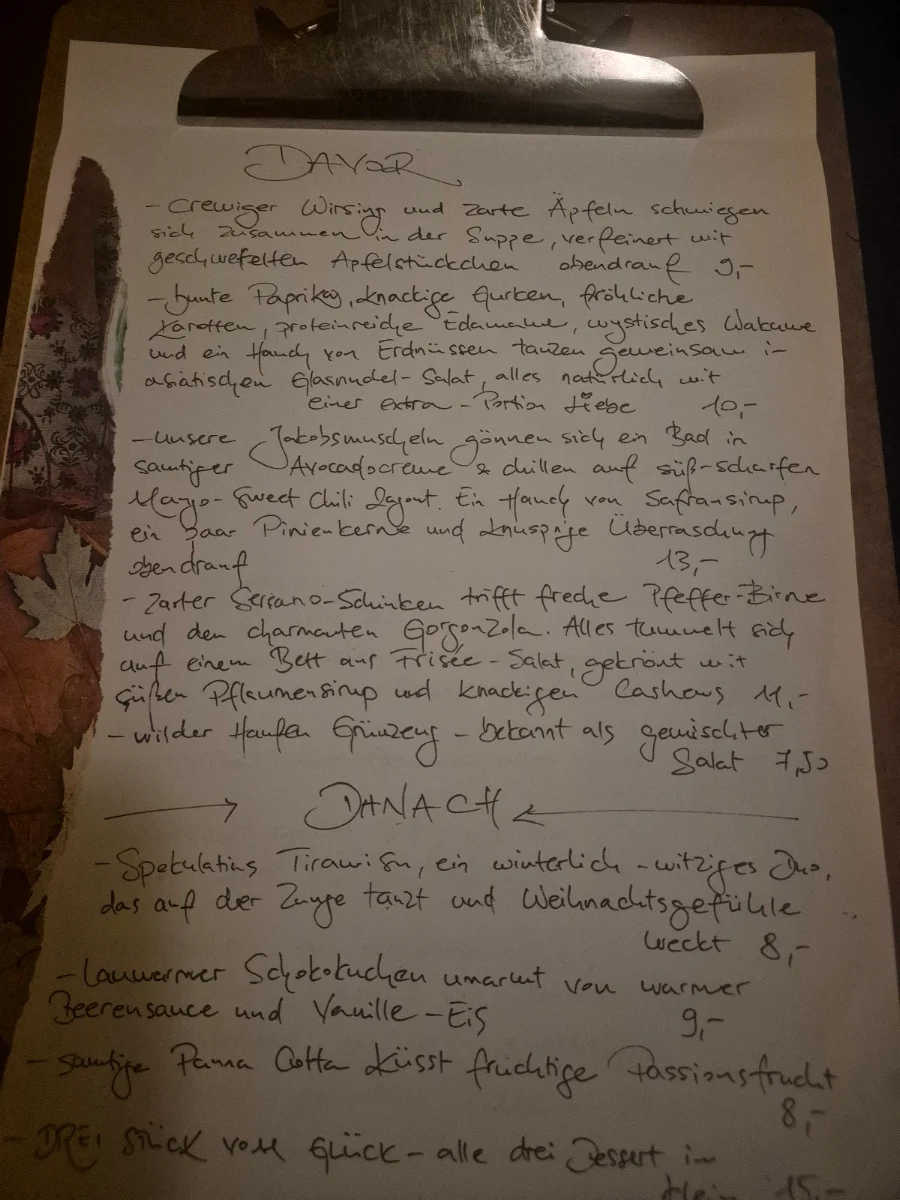 DAVOR
- cremiger Wirsing und zarte Äpfeln schmiegen
sich zusammen in der Suppe, verfeinert mit
geschwefelten Apfelstückchen obendrauf 9,-
- bunte Paprika, knackige Gurken, fröhliche
Karotten, proteinreiche Edamame, mystisches Wakame
und ein Hauch von Erdnüssen tanzen gemeinsam im
asiatischen Glasnudel-Salat, alles natürlich mit
einer extra-Portion Liebe 10,-
- unsere Jakobsmuscheln gönnen sich ein Bad in
samtiger Avocadocreme & chillen auf süß-scharfen
Mango-Sweet Chili Ragout. Ein Hauch von Safransirup,
ein paar Pinienkerne und knusprige Überraschung
obendrauf 13,-
- Zarter Serrano-Schinken trifft freche Pfeffer-Birne
und den charmanten Gorgonzola. Alles tummelt sich
auf einem Bett aus Frisée-Salat, gekrönt mit
süßen Pflaumensirup und knackigen Cashews 11,-
- wilder Haufen Grünzeug - bekannt als gemischter
Salat 7,50
DANACH
- Spekulatius Tiramisu, ein winterlich-witziges Duo,
das auf der Zunge tanzt und Weihnachtsgefühle
weckt 8,-
- lauwarmer Schokokuchen umarmt von warmer
Beerensauce und Vanille-Eis 9,-
- samtige Panna Cotta küsst fruchtige Passionsfrucht
8,-
- DREI STÜCK VOM GLÜCK - alle drei Dessert in
klein 15,-